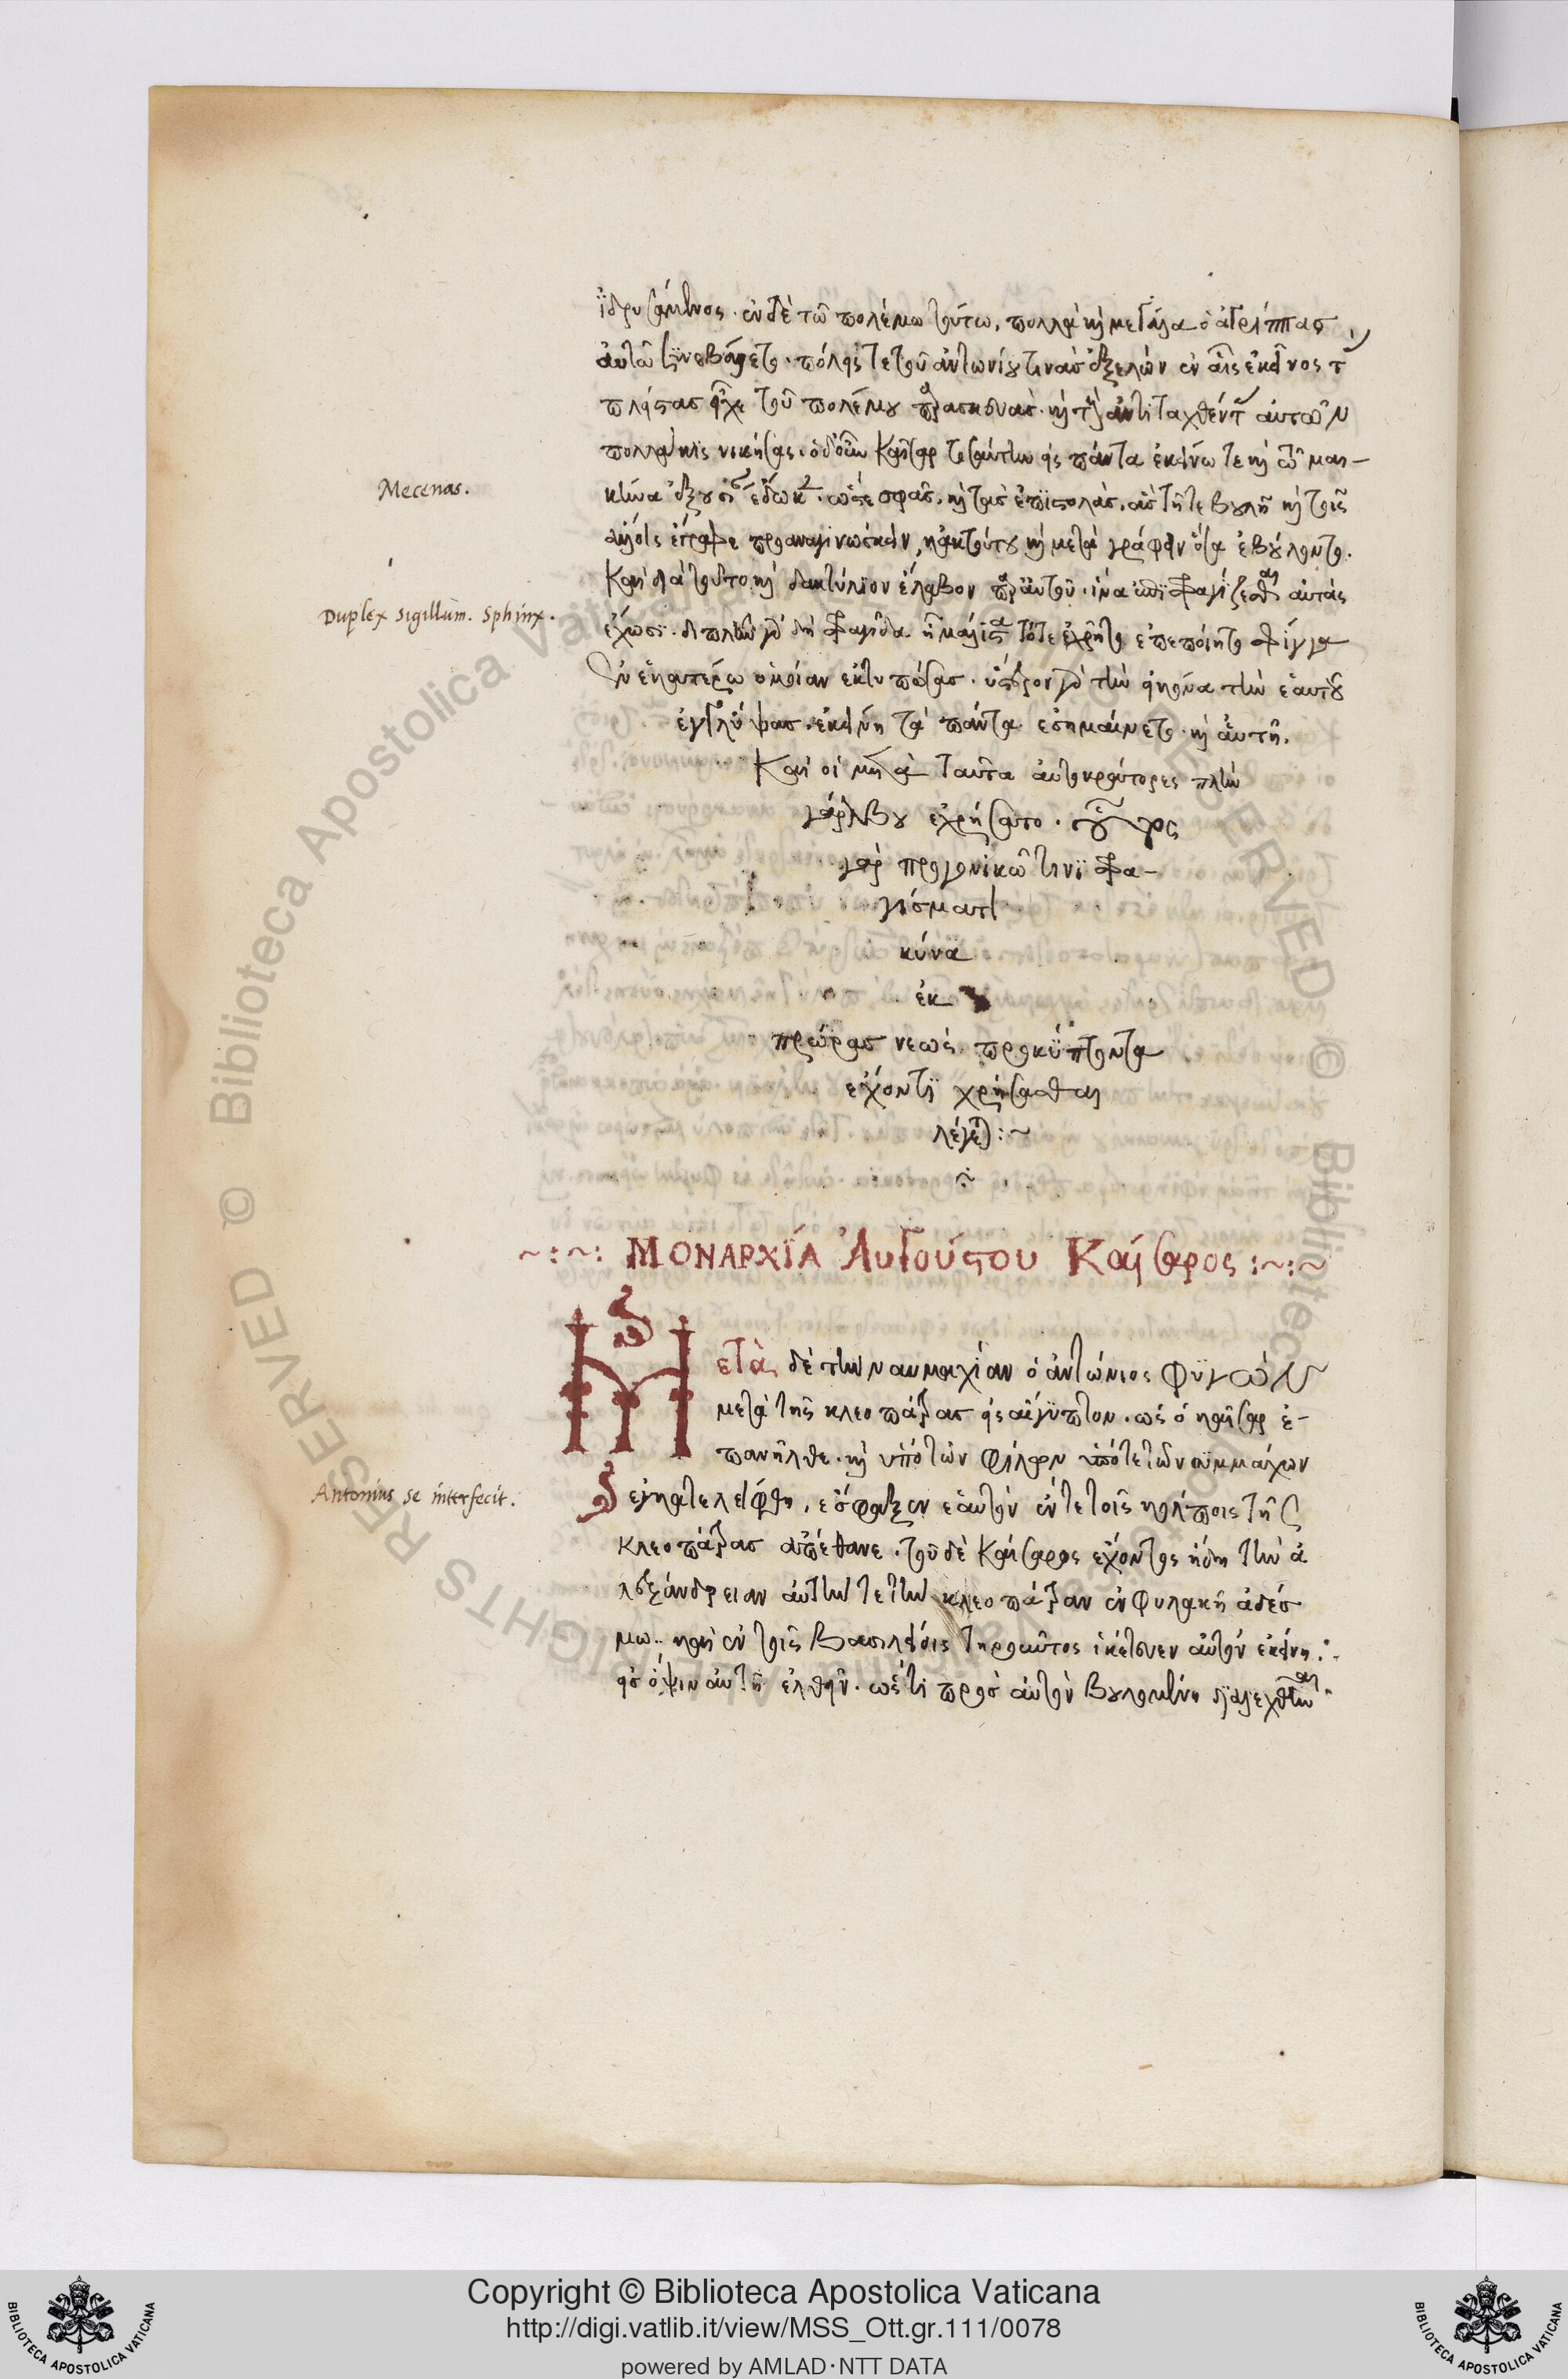 ἱδρυσάμενος. ἐν δὲ τῶ πολέμω τούτω, πολλὰ καὶ μεγάλα ὁ ἀγρίππας
αὐτῶ συνεβάλετο. πόλεις τε τοῦ ἀντωνίου τινὰς ἐξελὼν ἐν αἷς ἐκεῖνος τ
πλείστας εἶχε τοῦ πολέμου παρασκευάς. καὶ τῶν ἀντιταχθέντων αὐτῶν
πολλάκις νικήσας. ὁ δ' οὖν Καῖσαρ τοσαύτην εἰς πάντα ἐκείνω τε καὶ τῶ μαι-
κήνα ἐξουσίαν ἔδωκεν. ὥστε σφᾶς, καὶ τὰς ἐπιστολὰς, ἃς τῆ τε βουλῆ καὶ τοῖς
ἄλλοις ἔγραφε προαναγινώσκειν, κἀκ τούτου καὶ μεταγράφειν ὅσα ἐβούλοντο.
Καὶ διὰ τοῦτο καὶ δακτύλιον ἔλαβον παρ' αὐτοῦ. ἵνα ἐπισφραγίζεσθαι αὐτὰς
ἔχωσι. διπλῆν γὰρ δὴ σφραγῖδα ἧ μάλιστα τότε ἐχρῆτο ἐπεποίητο σφίγγα
ἐν ἑκατέρω ὁμοίαν ἐκτυπώσας. ὕστερον γὰρ τὴν εἰκόνα τὴν ἑαυτοῦ
ἐγγλύψας. ἐκείνη τὰ πάντα ἐσημαίνετο. καὶ αὐτῆ.
Καὶ οἱ μετὰ ταῦτα αὐτοκράτορες πλὴν
γάλβου ἐχρήσαντο. οὗτος
γὰρ προγονικῶ τινὶ σφρα-
γίσματι
κύνα
ἐκ
πρώρας νεὼς προκύπτοντα
ἔχοντι χρήσασθαι
λέγεται:~
÷
~:~: ΜΟΝΑΡΧΪΑ Ἀυγούστου Καίσαρος :~:~
Μετὰ δὲ τὴν ναυμαχίαν ὁ ἀντώνιος φυγὼν
μετὰ τῆς κλεοπάτρας εἰς αἴγυπτον. ὡς ὁ καῖσαρ ἐ-
πανῆλθε. καὶ ὑπὸ τῶν φίλων ὑπό τε τῶν συμμάχων
ἐγκατελείφθη, ἔσφαξεν ἑαυτὸν ἔν τε τοῖς κόλποις τῆς
κλεοπάτρας ἀπέθανε. τοῦ δὲ Καίσαρος ἔχοντος ἤδη τὴν ἀ
λεξάνδρειαν αὐτήν τε τὴν κλεοπάτραν ἐν φυλακῆ ἀδέσ
μω.. καὶ ἐν τοῖς βασιλείοις τηροῦντος ἱκέτευεν αὐτὸν ἐκείνη.
εἰς ὄψιν αὐτῆ ἐλθεῖν. ὥς τι πρὸς αὐτὸν βουλομένη διαλεχθῆναι
Mecenas.
Duplex sigillum. Sphinx.
Antonius se interfecit.
© Biblioteca Apostolica Vaticana
RIGHTS RESERVED
Copyright © Biblioteca Apostolica Vaticana
http://digi.vatlib.it/view/MSS_Ott.gr.111/0078
powered by AMLAD·NTT DATA
BIBLIOTECA APOSTOLICA VATICANA
BIBLIOTECA APOSTOLICA VATICANA